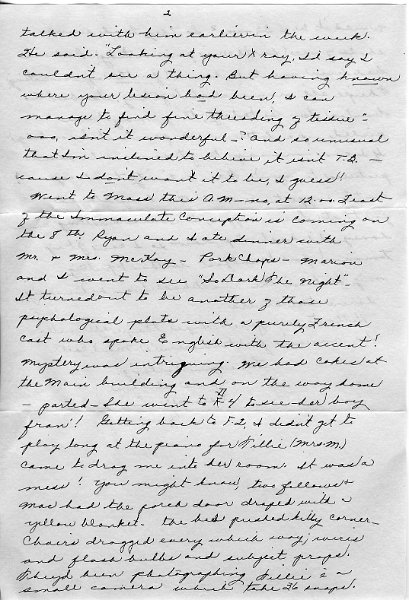 2
talked with him earlier in the week.
He said. "Looking at your X ray, I'd say I
couldn't see a thing. But having known
where your lesion had been, I can
manage to find fine threading of tissue"-
ooo, isn't it wonderful-? And so unusual
that I'm inclined to believe it isn't T.B. -
cause I don't want it to be, I guess!
Went to Mass this A.M. - so, at 12:00 Feast
of the Immaculate Conception is coming on
the 8th Ryan and I ate dinner with
Mr. & Mrs. McKay - Pork Chops - Marion
and I went to see "So Dark The Night"-
It turned out to be another of those
psphological plots with a purely French
cast who spoke English with the accent!
Mystery was intriguing. We had cokes at
the Main building and on the way home
- parted - She went to 4 to see her boy
fran! Getting back to T-2, I didn't get to
play long at the piano for Tillie (Mrs M)
came to drag me into her room. It was a
mess! You might know! two fellows &
Mac had the porch door draped with a
yellow blanket. the bed pushed kitty corner -
Chairs dragged every which way; wires
and flash bulbs and subject, props.
They'd been photographing Tillie & a
small camera which take 36 snaps.